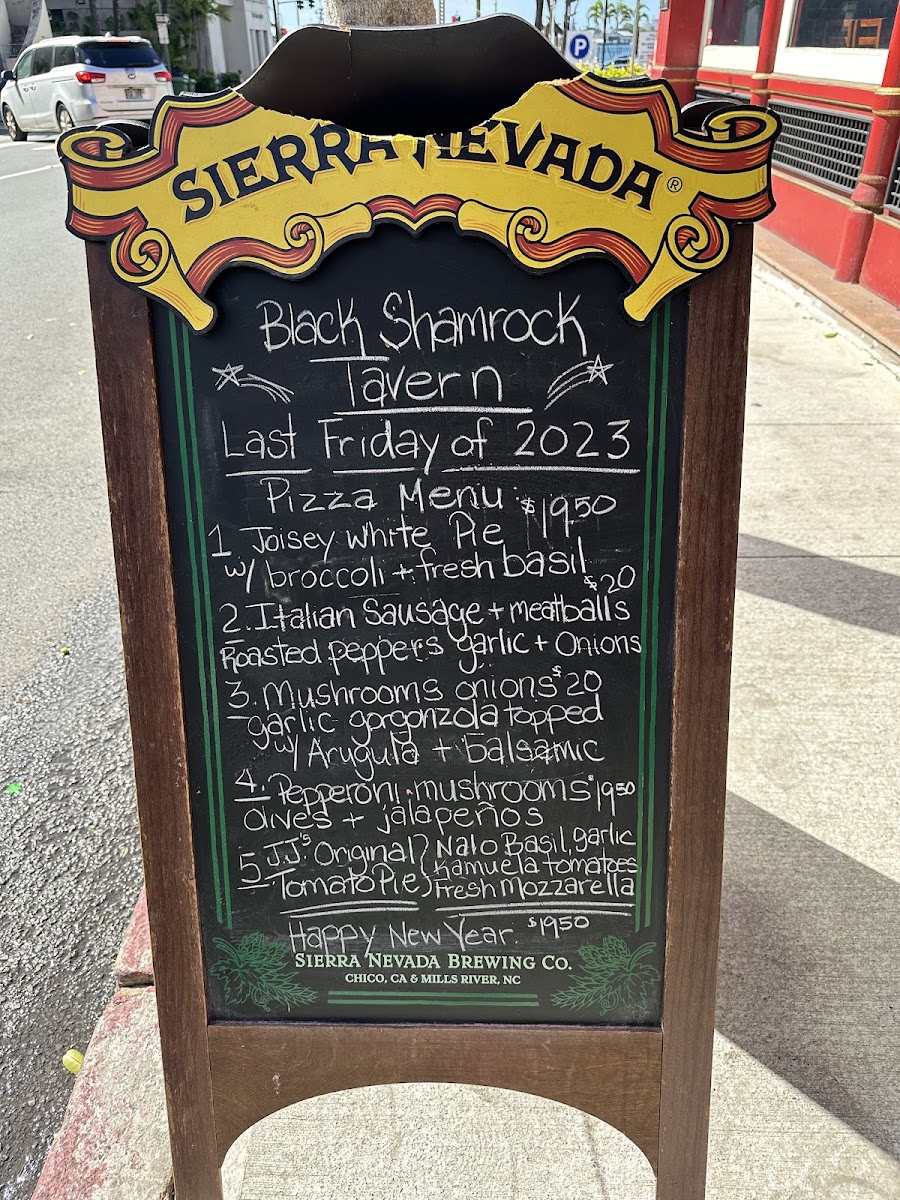 SIERRA NEVADA®
Black Shamrock
Tavern
Last Friday of 2023
Pizza Menu: $19.50
1. Joisey White Pie
w/ broccoli + fresh basil
$20
2. Italian Sausage + meatballs
Roasted peppers garlic + Onions
3. Mushrooms onions $20
garlic gorgonzola topped
w/ Arugula + balsamic
4. Pepperoni mushrooms $19.50
Olives + jalapeños
5. J.J.'s Original } Nalo Basil, garlic
Tomato Pie } Kamuela tomatoes
Fresh Mozzarella
Happy New Year. $19.50
SIERRA NEVADA BREWING CO.
CHICO, CA & MILLS RIVER, NC
P